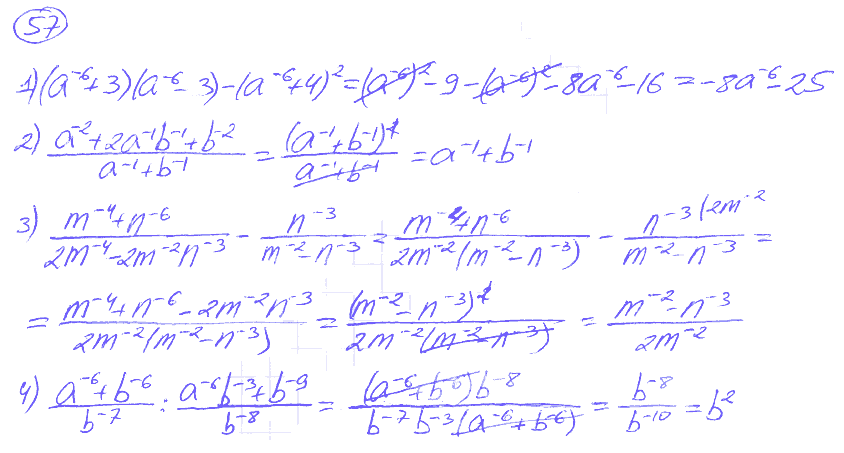 57
1) (a⁻⁶+3)(a⁻⁶-3)-(a⁻⁶+4)²=(a⁻⁶)²-9-(a⁻⁶)²-8a⁻⁶-16=-8a⁻⁶-25
2) (a⁻²+2a⁻¹b⁻¹+b⁻²)/(a⁻¹+b⁻¹) = (a⁻¹+b⁻¹)²/(a⁻¹+b⁻¹) = a⁻¹+b⁻¹
3) (m⁻⁴+n⁻⁶)/(2m⁻⁴-2m⁻²n⁻³) - n⁻³/(m⁻²-n⁻³) = (m⁻⁴+n⁻⁶)/(2m⁻²(m⁻²-n⁻³)) - n⁻³(2m⁻²/(m⁻²-n⁻³) =
= (m⁻⁴+n⁻⁶-2m⁻²n⁻³)/(2m⁻²(m⁻²-n⁻³)) = (m⁻²-n⁻³)²/(2m⁻²(m⁻²-n⁻³)) = (m⁻²-n⁻³)/(2m⁻²)
4) (a⁻⁶+b⁻⁶)/b⁻⁷ : (a⁻⁶b⁻³+b⁻⁹)/b⁻⁸ = (a⁻⁶+b⁻⁶)b⁻⁸/(b⁻⁷b⁻³(a⁻⁶+b⁻⁶)) = b⁻⁸/b⁻¹⁰ = b²